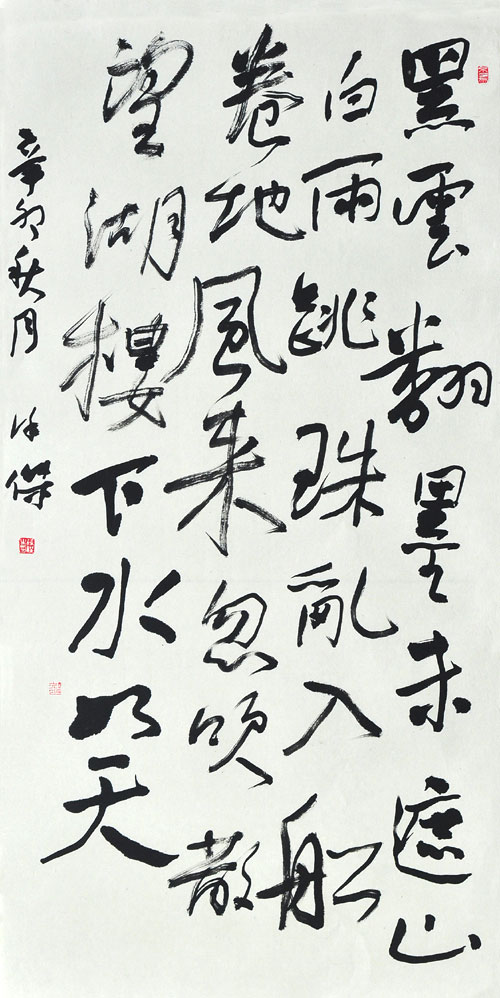 黑雲翻墨未遮山
白雨跳珠亂入船
卷地風來忽吹散
望湖樓下水如天
辛卯秋月 許傑